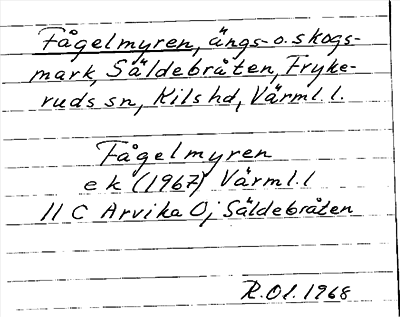 Fågelmyren, ängs- o. skogs-
mark, Säldebråten, Fryke-
ruds sn, Kils hd, Värml. l.
Fågelmyren
ek (1967) Värml. l
11 C Arvika 0j Säldebråten
R. Ol. 1968